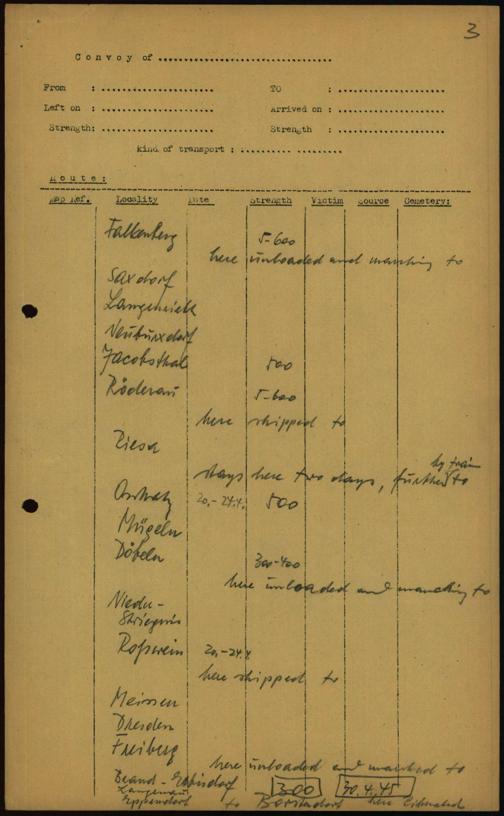 3
Convoy of ...............................
From : ....................  TO : ....................
Left on : ....................  Arrived on : ....................
Strength: ....................  Strength : ....................
Kind of transport : ......... .........
Route:
Map Ref. Locality Date Strength Victim Source Cemetery:
Falkenberg 5-600
here unloaded and marching to
Saxdorf
Langenrieth
Neuburxdorf
Jacobsthal 500
Röderau 5-600
here shipped to
Riesa
by train
stays here two days, further to
Oschatz 20.-24.4. 500
Mügeln
Döbeln 300-400
here unloaded and marching to
Nieder-
Striegnis
Roßwein 20.-24.4.
here shipped to
Meissen
Dresden
Freiberg
here unloaded and marched to
Brand-Erbisdorf 300 30.4.45
Langenau
Eppendorf to Borstendorf here liberated